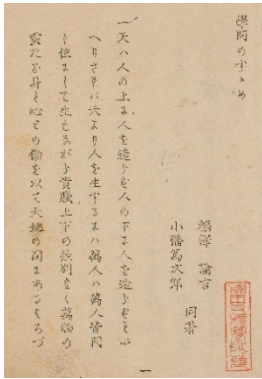 學問のすゝめ
福澤 諭吉
小幡篤次郎 同著
一天ハ人の上に人を造らず人の下に人を造らずと云
へりされバ天より人を生ずるにハ萬人ハ萬人皆同
じ位にして生れながら貴賤上下の差別なく萬物の
靈たる身と心との働を以て天地の間にあるよろづ
一